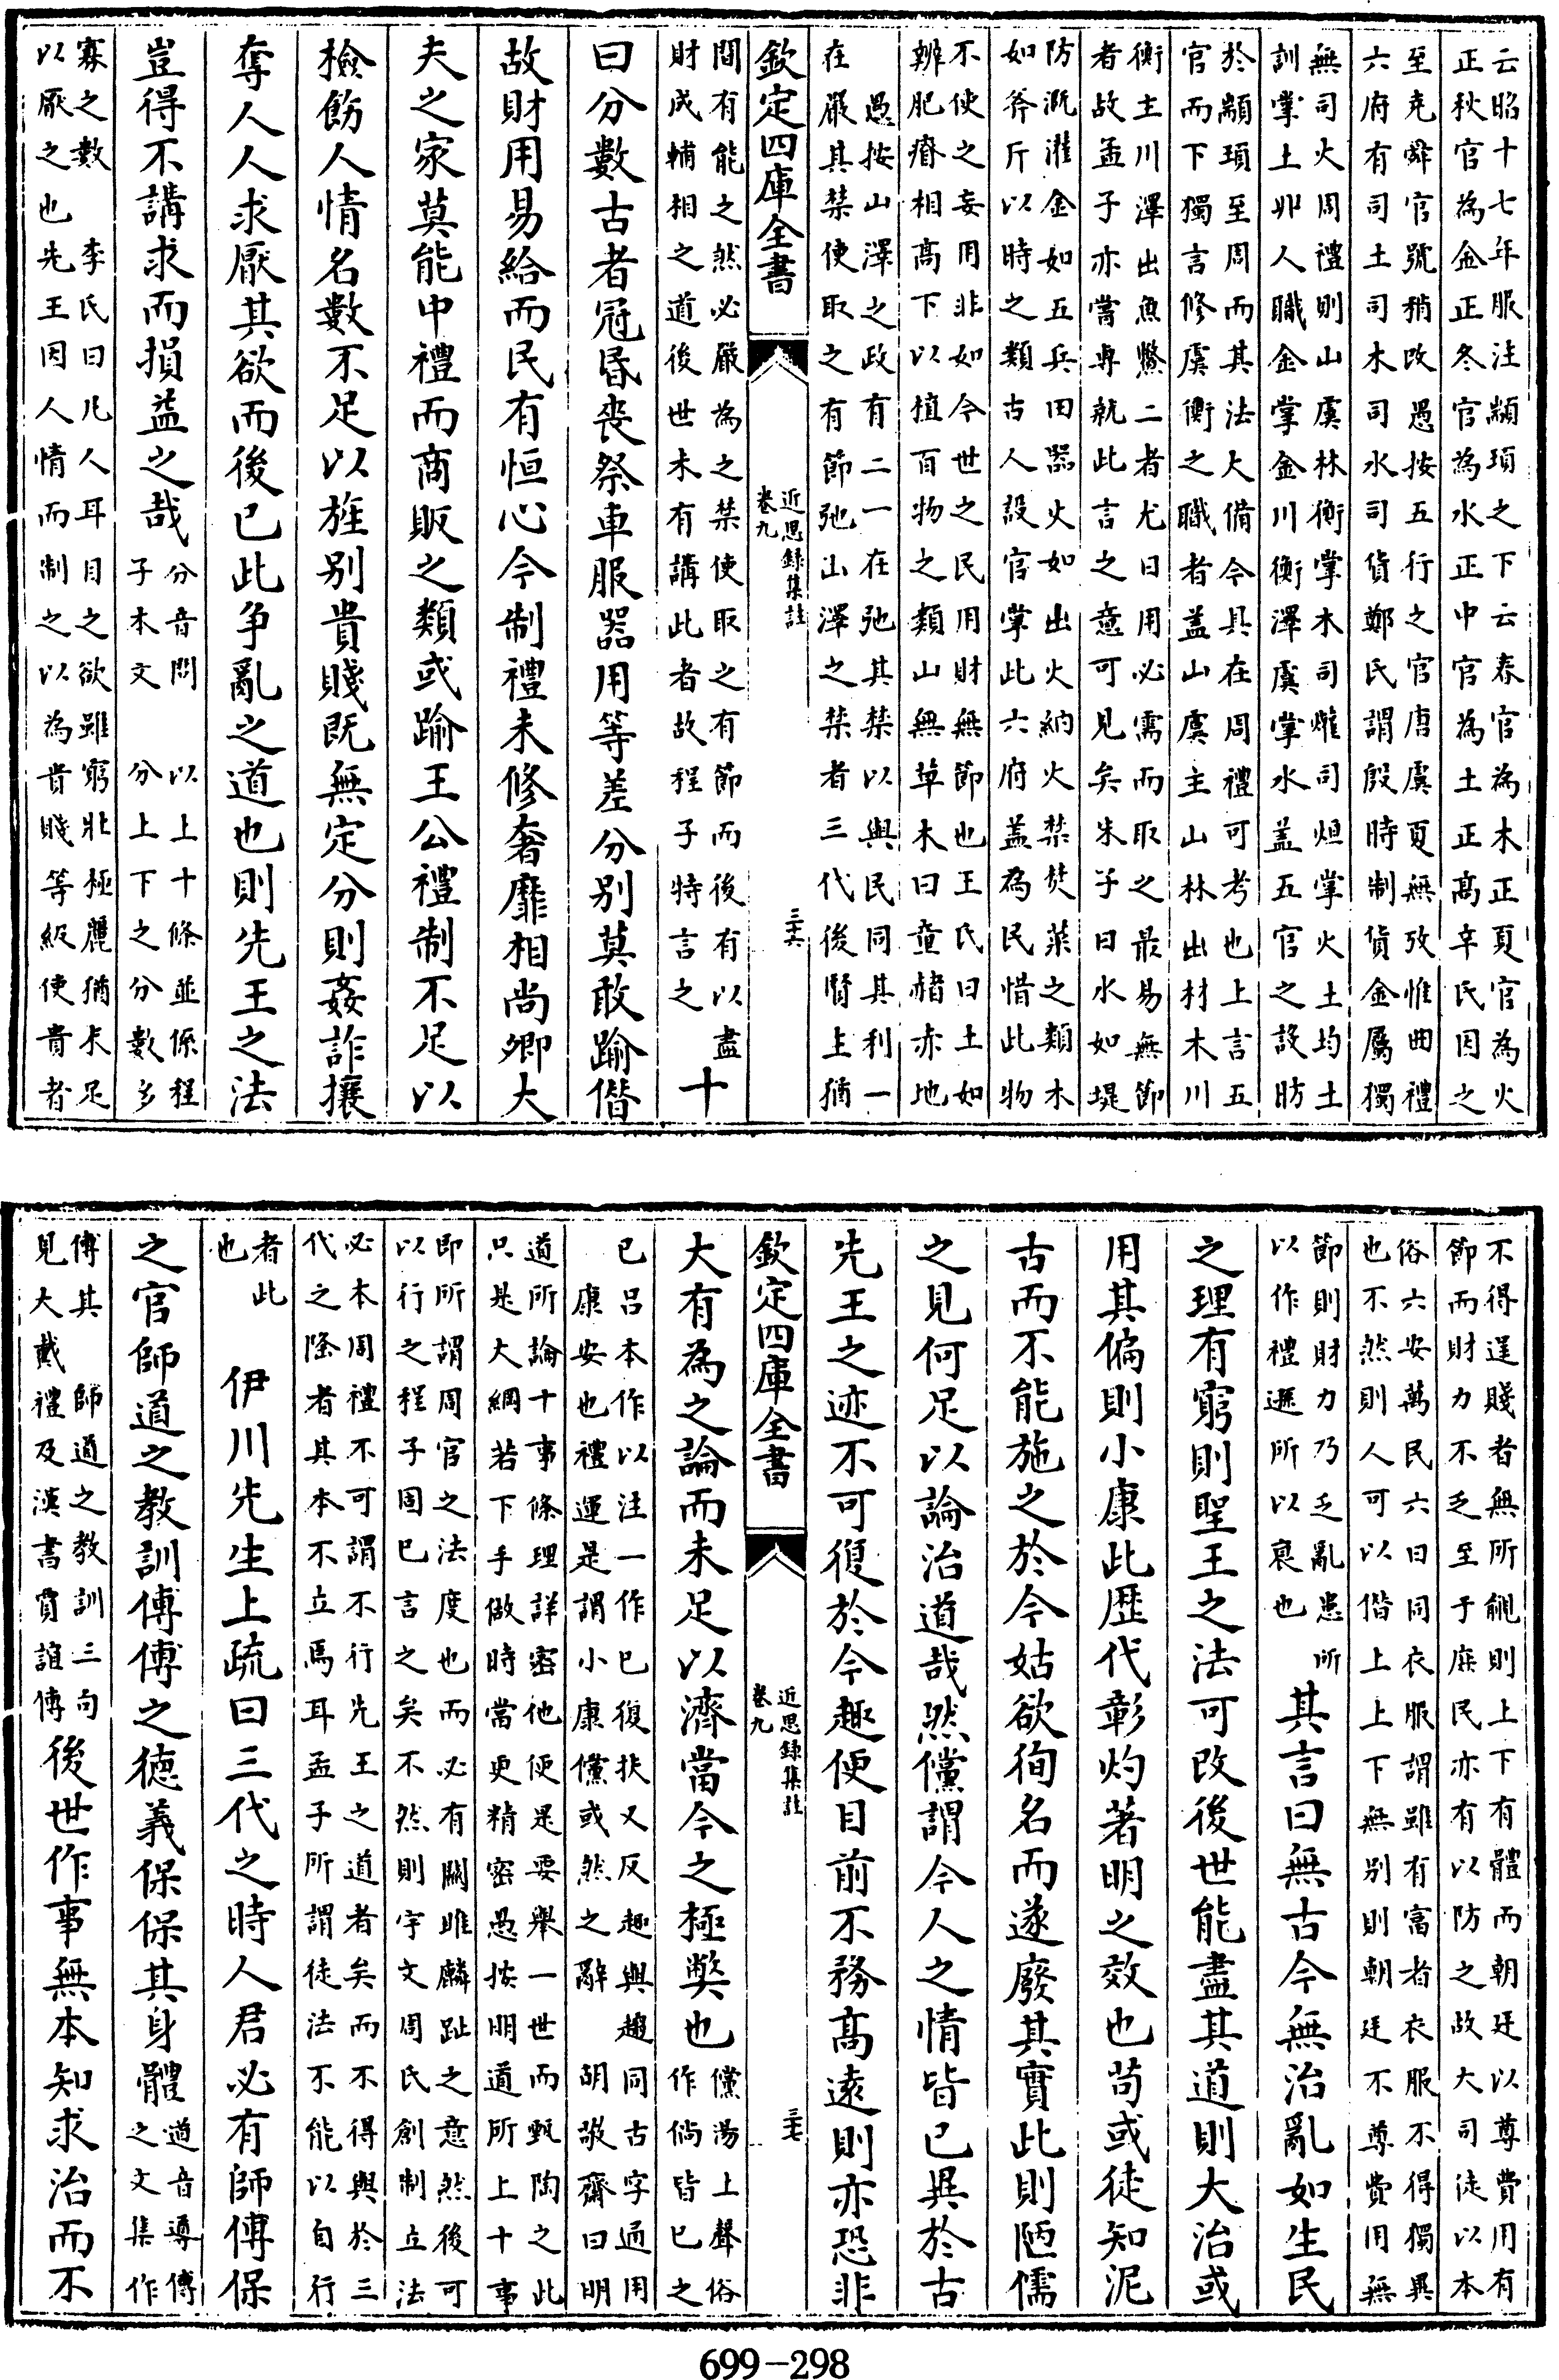 云昭十七年服注顓頊之下云春官為木正夏官為火
正秋官為金正冬官為水正中官為土正髙辛氏因之
至堯舜官號稍改愚按五行之官唐虞夏無攷惟曲禮
六府有司土司木司水司貨鄭氏謂殷時制貨金屬獨
無司火周禮則山虞林衡掌木司爟司烜掌火土均土
訓掌土丱人職金掌金川衡澤虞掌水盖五官之設昉
於顓頊至周而其法大備今具在周禮可考也上言五
官而下獨言修虞衡之職者盖山虞主山林出材木川
衡主川澤出魚鱉二者尤日用必需而取之最易無節
者故孟子亦嘗専就此言之意可見矣朱子曰水如堤
防溉灌金如五兵田器火如出火納火禁焚萊之類木
如斧斤以時之類古人設官掌此六府盖為民惜此物
不使之妄用非如今世之民用財無節也王氏曰土如
辨肥瘠相髙下以植百物之類山無草木曰童赭赤地
愚按山澤之政有二一在弛其禁以與民同其利一
在嚴其禁使取之有節弛山澤之禁者三代後賢主猶
欽定四庫全書
近思錄集註
卷九
三十六
間有能之然必嚴為之禁使取之有節而後有以盡
財成輔相之道後世未有講此者故程子特言之
十
曰分數古者冠昏喪祭車服器用等差分别莫敢踰僭
故財用易給而民有恒心今制禮未修奢靡相尚卿大
夫之家莫能中禮而商販之類或踰王公禮制不足以
檢飭人情名數不足以旌别貴賤既無定分則姦詐攘
奪人人求厭其欲而後已此争亂之道也則先王之法
豈得不講求而損益之哉
分音問
子本文
以上十條並係程
分上下之分數多
寡之數　李氏曰凡人耳目之欲雖窮壯極麗猶未足
以厭之也先王因人情而制之以為貴賤等級使貴者
不得逞賤者無所觖則上下有體而朝廷以尊費用有
節而財力不乏至于庶民亦有以防之故大司徒以本
俗六安萬民六曰同衣服謂雖有富者衣服不得獨異
也不然則人可以僭上上下無别則朝廷不尊費用無
節則財力乃乏亂患所
以作禮遜所以衰也
其言曰無古今無治亂如生民
之理有窮則聖王之法可改後世能盡其道則大治或
用其偏則小康此歴代彰灼著明之效也苟或徒知泥
古而不能施之於今姑欲徇名而遂廢其實此則陋儒
之見何足以論治道哉然儻謂今人之情皆已異於古
先王之迹不可復於今趣便目前不務髙遠則亦恐非
欽定四庫全書
近思錄集註
卷九
三十七
大有為之論而未足以濟當今之極弊也
儻湯上聲俗
作倘皆已之
已吕本作以注一作已復扶又反趣與趨同古字通用
康安也禮運是謂小康儻或然之辭　胡敬齋曰明
道所論十事條理詳密他便是要舉一世而甄陶之此
只是大綱若下手做時當更精密愚按明道所上十事
即所謂周官之法度也而必有關雎麟趾之意然後可
以行之程子固已言之矣不然則宇文周氏創制立法
必本周禮不可謂不行先王之道者矣而不得與於三
代之隆者其本不立焉耳孟子所謂徒法不能以自行
者此
也
伊川先生上疏曰三代之時人君必有師傅保
之官師道之教訓傅傅之徳義保保其身體
道音導傅
之文集作
傅其　師道之教訓三句
見大戴禮及漢書賈誼傳
後世作事無本知求治而不
699－298